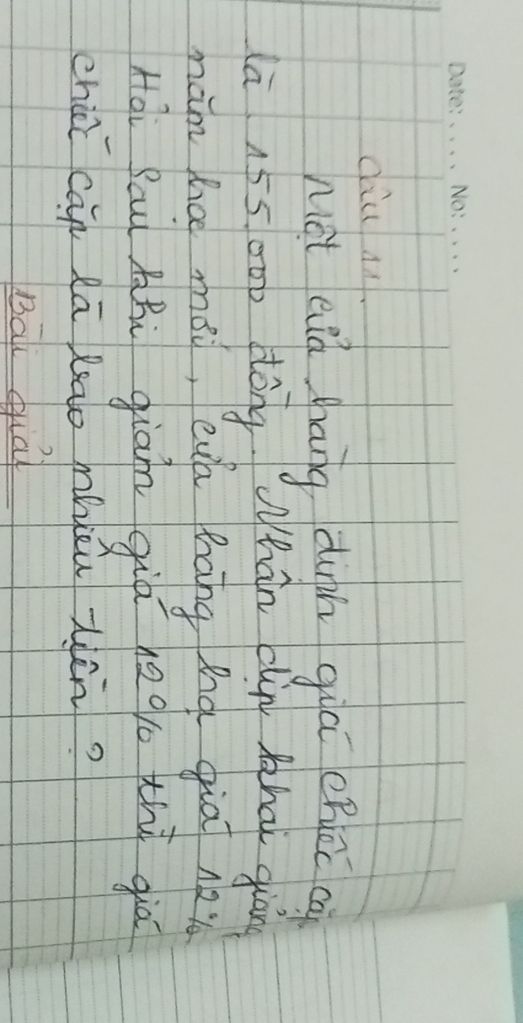 Date: .... No: ....
Câu 11.
Một cửa hàng định giá chiếc cặp
là 155.000 đồng. Nhân dịp khai giảng
năm học mới, cửa hàng hạ giá 12%
Hỏi Sau khi giảm giá 12% thì giá
chiếc cặp là bao nhiêu tiền ?
Bài giải